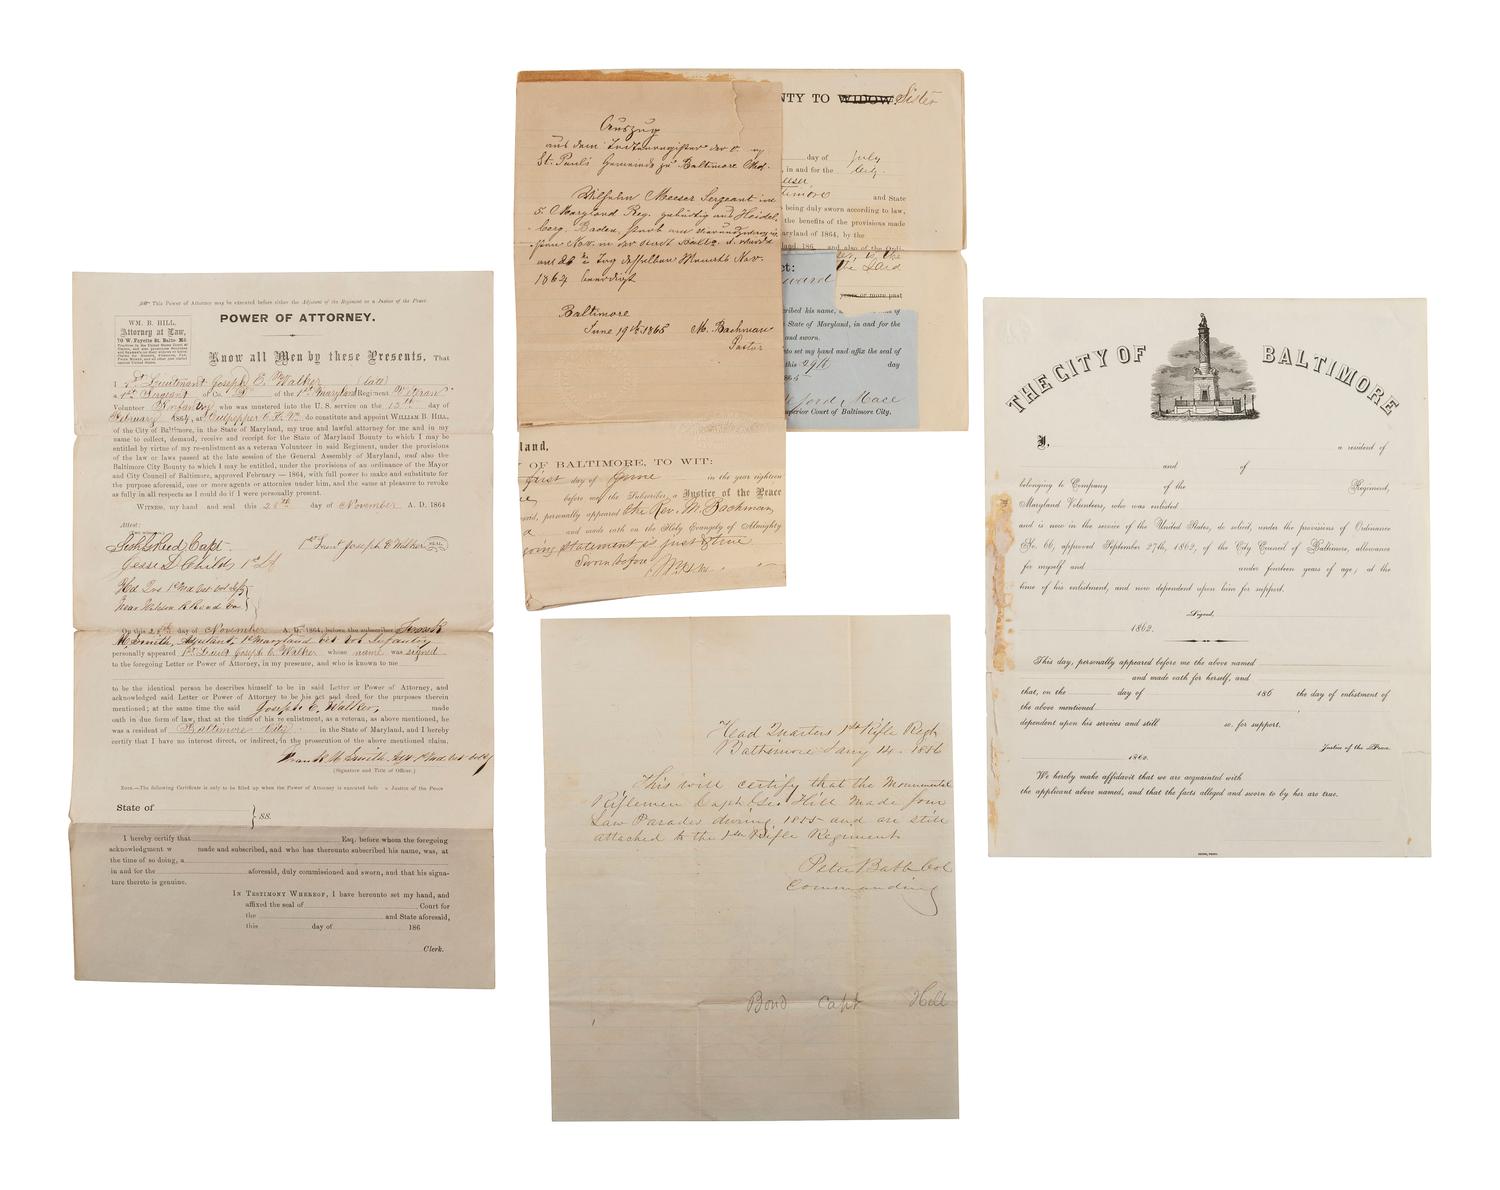 This Power of Attorney may be executed before either the Adjutant of the Regiment or a Justice of the Peace.
POWER OF ATTORNEY.
WM. B. HILL,
Attorney at Law,
70 W. Fayette St. Balto. Md.
Know all Men by these Presents, That
I 1st Lieutenant Joseph E. Walker (late)
a 1st Sergeant of Co. of the 1st Maryland Regiment Veteran
Volunteer Infantry who was mustered into the U. S. service on the day of
February 1864, at Culpepper C. H. Va. do constitute and appoint WILLIAM B. HILL,
of the City of Baltimore, in the State of Maryland, my true and lawful attorney for me and in my
name to collect, demand, receive and receipt for the State of Maryland Bounty to which I may be
entitled by virtue of my re-enlistment as a veteran Volunteer in said Regiment, under the provisions
of the law or laws passed at the late session of the General Assembly of Maryland, and also the
Baltimore City Bounty to which I may be entitled, under the provisions of an ordinance of the Mayor
and City Council of Baltimore, approved February — 1864, with full power to make and substitute for
the purpose aforesaid, one or more agents or attornies under him, and the same at pleasure to revoke
as fully in all respects as I could do if I were personally present.
WITNESS, my hand and seal this 28th day of November A. D. 1864
Attest:
Capt.
1st Lieut Joseph E Walker SEAL
Jesse D Childs 1st Lt
Hd Qrs 1st Md Vet Vol Infy
Near
On this 28th day of November A. D. 1864, before the subscriber Frank
M. Smith, Adjutant, 1st Maryland Vet Vol Infantry
personally appeared 1st Lieut Joseph E. Walker whose name was signed
to the foregoing Letter or Power of Attorney, in my presence, and who is known to me
to be the identical person he describes himself to be in said Letter or Power of Attorney, and
acknowledged said Letter or Power of Attorney to be his act and deed for the purposes therein
mentioned; at the same time the said Joseph E. Walker, made
oath in due form of law, that at the time of his re enlistment, as a veteran, as above mentioned, he
was a resident of Baltimore City in the State of Maryland, and I hereby
certify that I have no interest direct, or indirect, in the prosecution of the above mentioned claim.
Frank M. Smith. Adjt 1st Md Vet Vol Infy
(Signature and Title of Officer.)
NOTE.—The following Certificate is only to be filled up when the Power of Attorney is executed before a Justice of the Peace
State of
} ss.
I hereby certify that Esq. before whom the foregoing
acknowledgment w made and subscribed, and who has thereunto subscribed his name, was, at
the time of so doing, a
in and for the aforesaid, duly commissioned and sworn, and that his signa-
ture thereto is genuine.
IN TESTIMONY WHEREOF, I have hereunto set my hand, and
affixed the seal of Court for
the and State aforesaid,
this day of 186
Clerk.
Auszug
aus dem Todtenregister der
St. Pauls Gemeinde zu Baltimore Md.
Wilhelm Meeser Sergeant im
5. Maryland Reg. gebürtig aus Heidel-
berg, Baden, starb am
Nov. in der Stadt Balto. u. wurde
am 26 Tag desselben Monats Nov.
1864 beerdigt
Baltimore
June 19th 1865 M. Bachman
Pastor
NTY TO WIDOW. Sister
day of July
, in and for the City
eeser
timore and State
being duly sworn according to law,
the benefits of the provisions made
aryland of 1864, by the
land, 186 and also of the Ordi-
the said
ct:
years or more past
cribed his name, of
State of Maryland, in and for the
and sworn.
to set my hand and affix the seal of
this 29th day
1865
ford Mace
uperior Court of Baltimore City.
land,
OF BALTIMORE, TO WIT:
first day of June in the year eighteen
before me the Subscriber, a Justice of the Peace
said, personally appeared the Rev. M. Bachman
and made oath on the Holy Evangely of Almighty
going statement is just & true
Sworn before
Head Quarters 1st Rifle Regt
Baltimore Jany 14. 1856
This will certify that the Monumental
Riflemen Capt Geo. Hill made four
Law Parades during 1855 and are still
attached to the 1st Rifle Regiment
Peter Bath Col
Commanding
Bond Capt Hill
THE CITY OF BALTIMORE
I, a resident of
and of
belonging to Company of the Regiment,
Maryland Volunteers, who was enlisted
and is now in the service of the United States, do solicit, under the provisions of Ordinance
No. 66, approved September 27th, 1862, of the City Council of Baltimore, allowance
for myself and under fourteen years of age; at the
time of his enlistment, and now dependent upon him for support.
Signed,
1862.
This day, personally appeared before me the above named
and made oath for herself, and
that, on the day of 186 the day of enlistment of
the above mentioned
dependent upon his services and still so, for support.
Justice of the Peace.
1862.
We hereby make affidavit that we are acquainted with
the applicant above named, and that the facts alleged and sworn to by her are true.